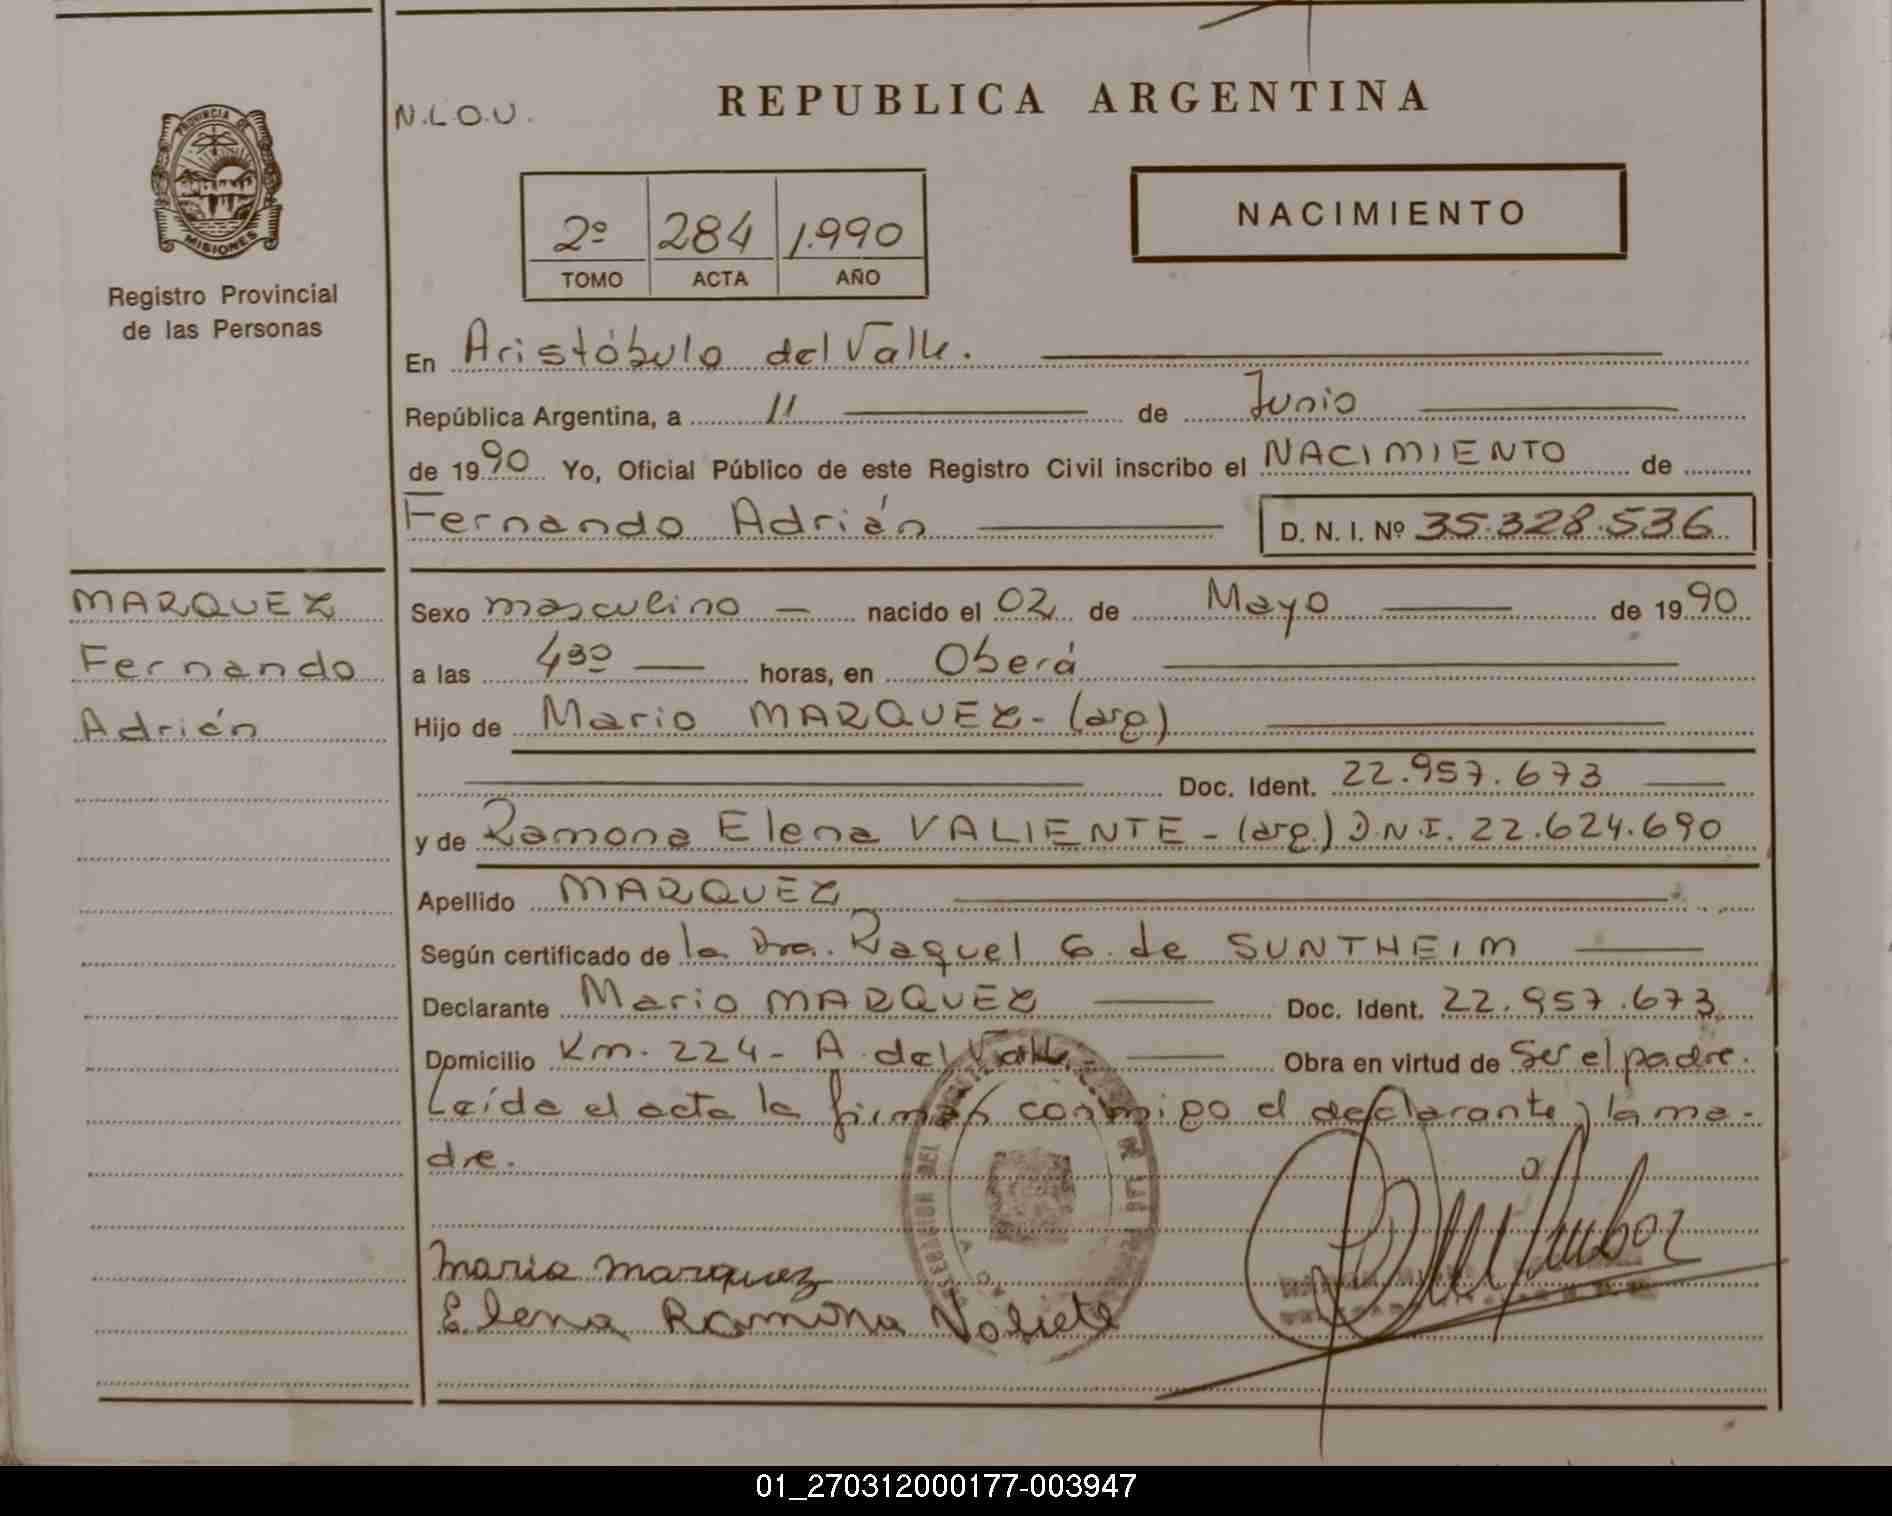 PROVINCIA DE
MISIONES
Registro Provincial
de las Personas
N.L.O.U.
REPUBLICA ARGENTINA
2º 284 1.990
TOMO ACTA AÑO
NACIMIENTO
En Aristóbulo del Valle.
República Argentina, a 11 de Junio
de 1990 Yo, Oficial Público de este Registro Civil inscribo el NACIMIENTO de
Fernando Adrián D. N. I. Nº 35.328.536
MARQUEZ
Fernando
Adrián
Sexo masculino nacido el 02 de Mayo de 1990
a las 4³⁰ horas, en Oberá
Hijo de Mario MARQUEZ - (arg)
Doc. Ident. 22.957.673
y de Ramona Elena VALIENTE - (arg.) D.N.I. 22.624.690
Apellido MARQUEZ
Según certificado de la Dra. Raquel G. de SUNTHEIM
Declarante Mario MARQUEZ Doc. Ident. 22.957.673
Domicilio Km. 224 - A. del Valle. Obra en virtud de Ser el padre.
Leída el acta la firman conmigo el declarante y la ma-
dre.
Mario Marquez
Elena Ramona
01_270312000177-003947